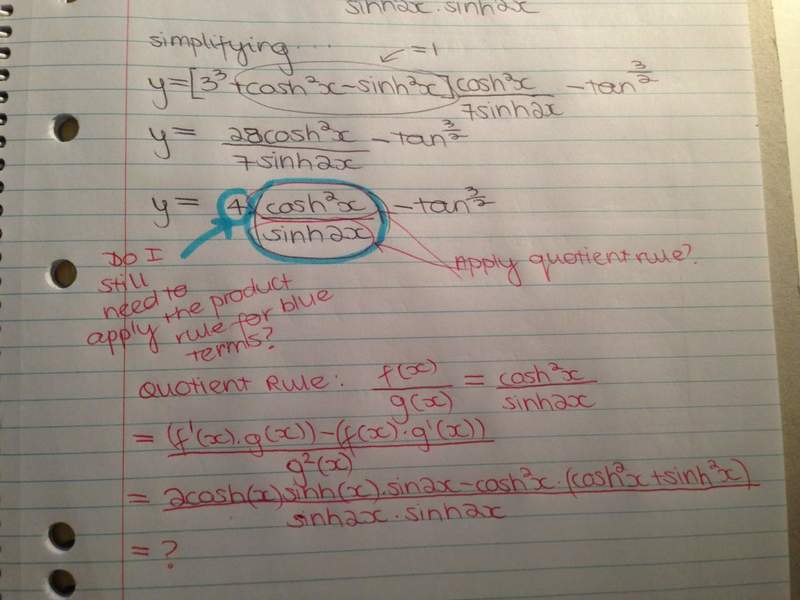 sinh2x · sinh2x
simplifying...
=1
y=[3³+cosh²x-sinh²x]cosh²x/7sinh2x -tan^3/2
y= 28cosh²x/7sinh2x -tan^3/2
y= 4 cosh²x/sinh2x -tan^3/2
Do I
still
need to
apply the product
rule for blue
terms?
Apply quotient rule?
Quotient Rule: f(x)/g(x) = cosh²x/sinh2x
= (f'(x).g(x))-(f(x)·g'(x))/g²(x)
= 2cosh(x)sinh(x).sin2x-cosh²x·(cosh²x+sinh²x)/sinh2x · sinh2x
= ?